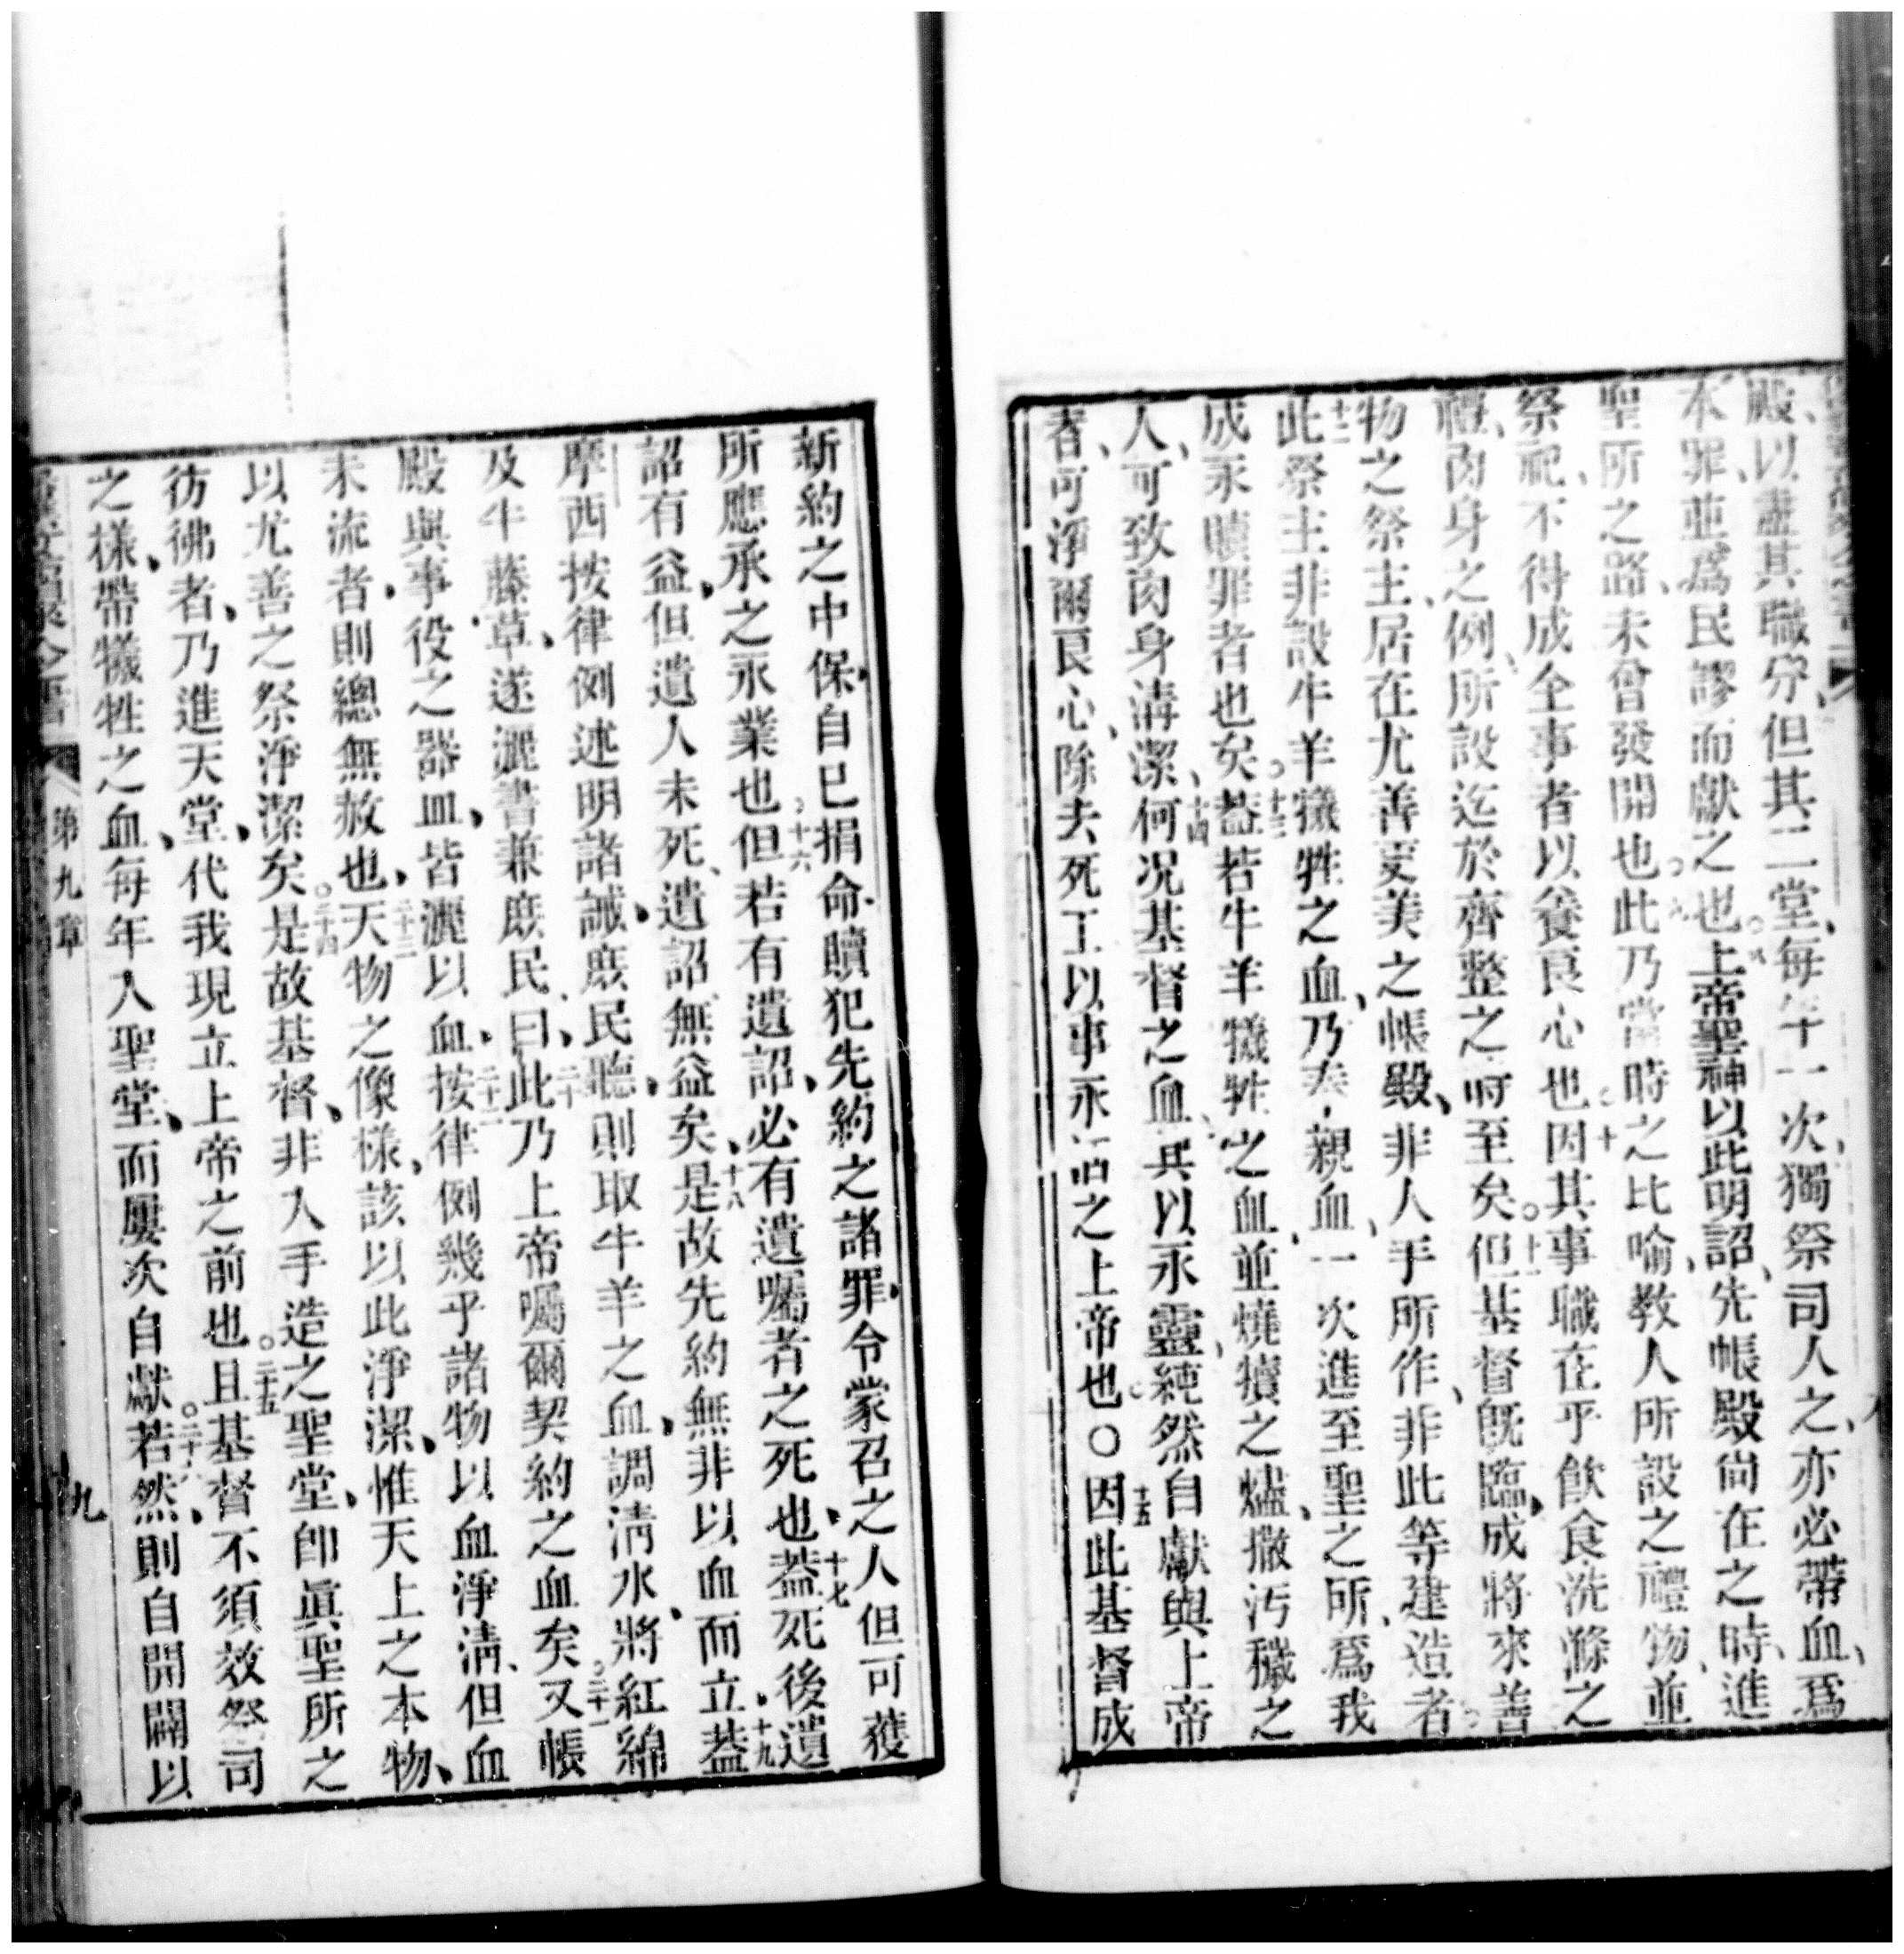 殿、以盡其職分、但其二堂、每年一次、獨祭司人之、亦必帶血、爲
本罪、並爲民謬而獻之也。上帝聖神以此明詔、先帳殿尚在之時、進
聖所之路、未曾發開也。此乃當時之比喻、教人所設之禮物、並
祭祀、不得成全事者以養良心也。十因其事職在乎飲食洗滌之
禮、肉身之例、所設迄於齊整之時至矣。十一但基督既臨、成將來善
物之祭主、居在尤善更美之帳殿、非人手所作、非此等建造者。
十二此祭主非設牛羊犧牲之血、乃奉親血、一次進至聖之所、爲我
成永贖罪者也矣。十三蓋若牛羊犧牲之血、並燒犢之燼、撒汚穢之
人、可致肉身淸潔、十四何况基督之血、其以永靈、純然自獻與上帝
者、可淨爾良心、除去死工以事永活之上帝也。〇十五因此基督成
新約之中保、自己捐命、贖犯先約之諸罪、令蒙召之人但可獲
所應承之永業也。十六但若有遺詔、必有遺囑者之死也、十七蓋死後遺
詔有益、但遺人未死、遺詔無益矣、十八是故先約無非以血而立、十九蓋
摩西按律例述明諸誡、庶民聽、則取牛羊之血、調淸水、將紅綿
及牛藤草、遂灑書兼庶民、二十曰、此乃上帝囑爾契約之血矣。二十一又帳
殿與事役之器皿、皆灑以血、二十二按律例幾乎諸物以血淨淸、但血
未流者、則總無赦也、二十三天物之像樣、該以此淨潔、惟天上之本物、
以尤善之祭淨潔矣。二十四是故基督、非入手造之聖堂、卽眞聖所之
彷彿者、乃進天堂、代我現立上帝之前也。二十五且基督不須效祭司
之樣、帶犧牲之血、每年入聖堂、而屢次自獻。二十六若然、則自開闢以
第九章
九